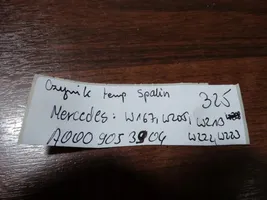 Czujnik temp spalin 325
Mercedes: W167, W205, W213
A000 905 3904 W222, W223